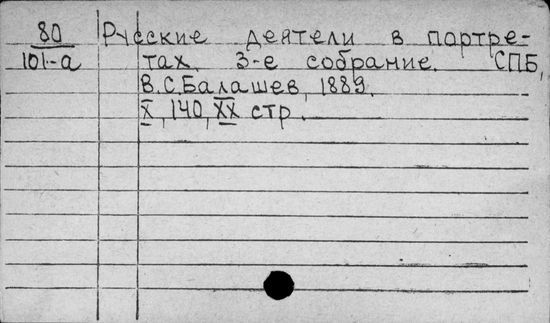 80 Русские деятели в портре-
101-а тах. 3-е собрание. СПБ,
В.С.Балашев, 1889.
X, 140, XX стр.